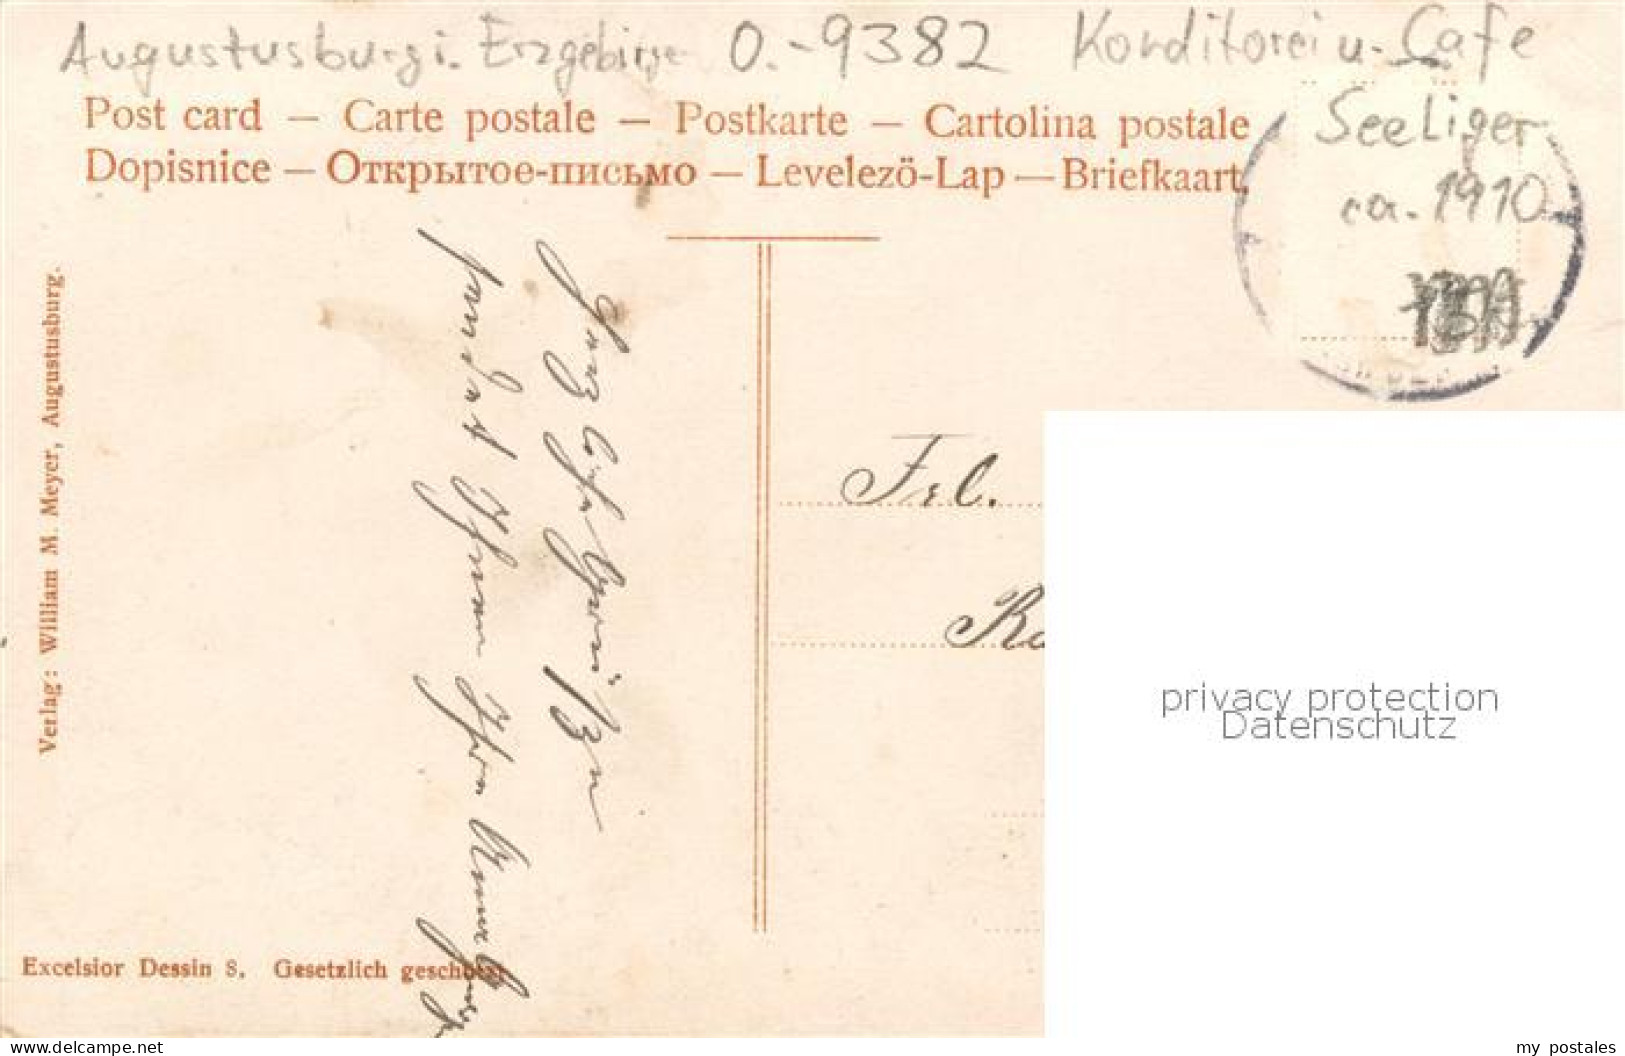 Augustusburg i. Erzgebirge O.-9382 Konditorei u. Cafe
Seeliger
ca. 1910
Post card – Carte postale – Postkarte – Cartolina postale
Dopisnice – Открытое-письмо – Levelezö-Lap – Briefkaart.
Verlag: William M. Meyer, Augustusburg.
sendet Ihnen Ihre
Frl.
Excelsior Dessin 8. Gesetzlich geschützt
privacy protection
Datenschutz
www.delcampe.net
my_postales